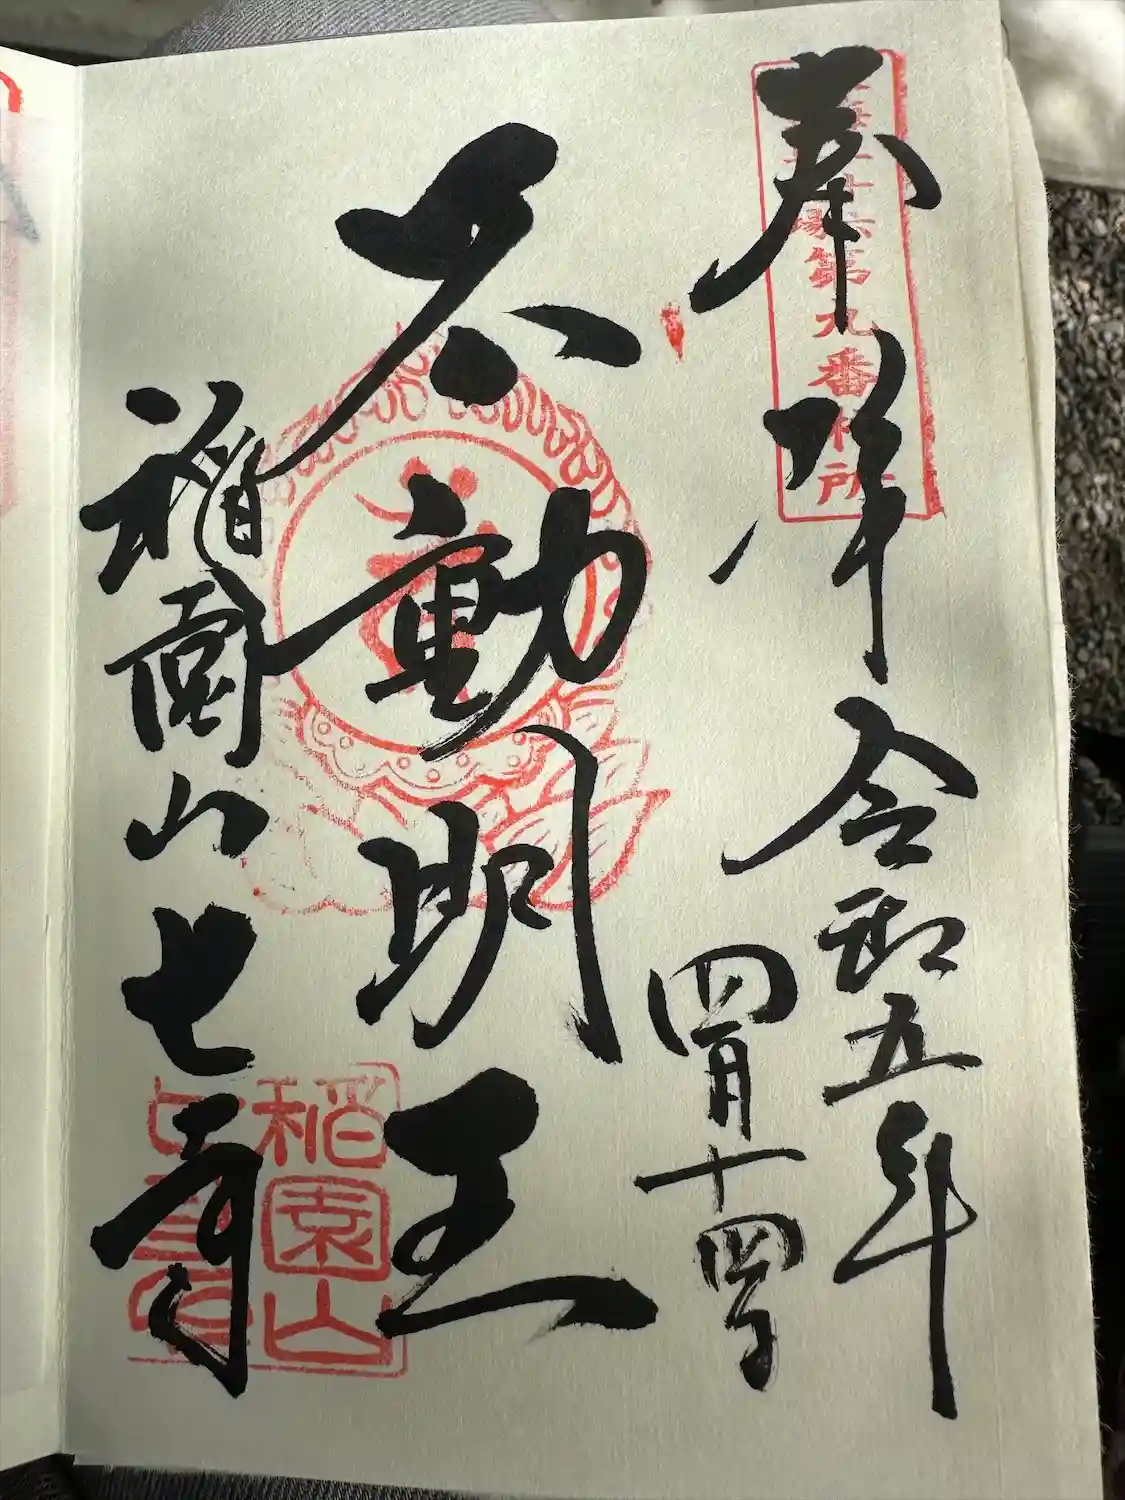 奉拝
第九番札所
令和五年
四月十四日
不動明王
稲園山七寺
稲園山